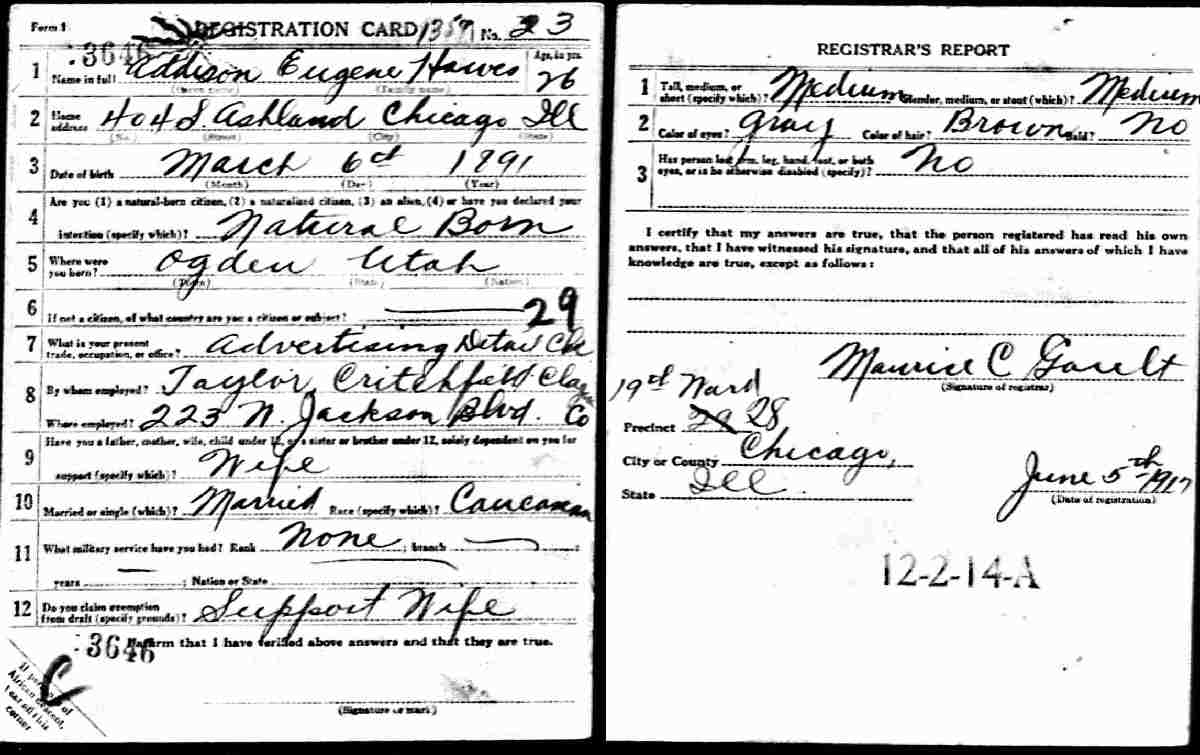 Form 1 REGISTRATION CARD No. 23
3646
1 Name in full Addison Eugene Hawes Age, in yrs. 26
(Given name) (Family name)
2 Home address 404 S. Ashland Chicago Ill
(No.) (Street) (City) (State)
3 Date of birth March 6th 1891
(Month) (Day) (Year)
4 Are you (1) a natural-born citizen, (2) a naturalized citizen, (3) an alien, (4) or have you declared your
intention (specify which)? Natural Born
5 Where were you born? Ogden Utah
(Town) (State) (Nation)
6 If not a citizen, of what country are you a citizen or subject? 29
7 What is your present trade, occupation, or office? Advertising
8 By whom employed? Taylor Critchfield Co
Where employed? 223 N. Jackson Blvd.
9 Have you a father, mother, wife, child under 12, or a sister or brother under 12, solely dependent on you for
support (specify which)? Wife
10 Married or single (which)? Married Race (specify which)? Caucasian
11 What military service have you had? Rank None ; branch ;
years ; Nation or State
12 Do you claim exemption from draft (specify grounds)? Support Wife
3646 I affirm that I have verified above answers and that they are true.
If person is of
African descent,
tear off this
corner
(Signature or mark)
REGISTRAR'S REPORT
1 Tall, medium, or short (specify which)? Medium Slender, medium, or stout (which)? Medium
2 Color of eyes? Gray Color of hair? Brown Bald? No
3 Has person lost arm, leg, hand, foot, or both
eyes, or is he otherwise disabled (specify)? No
I certify that my answers are true, that the person registered has read his own
answers, that I have witnessed his signature, and that all of his answers of which I have
knowledge are true, except as follows:
Maurice C Gault
(Signature of registrar)
19th Ward
Precinct 28
City or County Chicago,
State Ill.
June 5th 1917
(Date of registration)
12-2-14-A